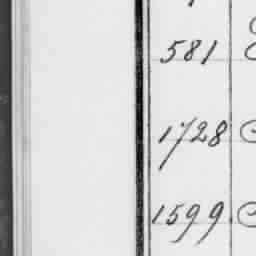 581
1728
1599